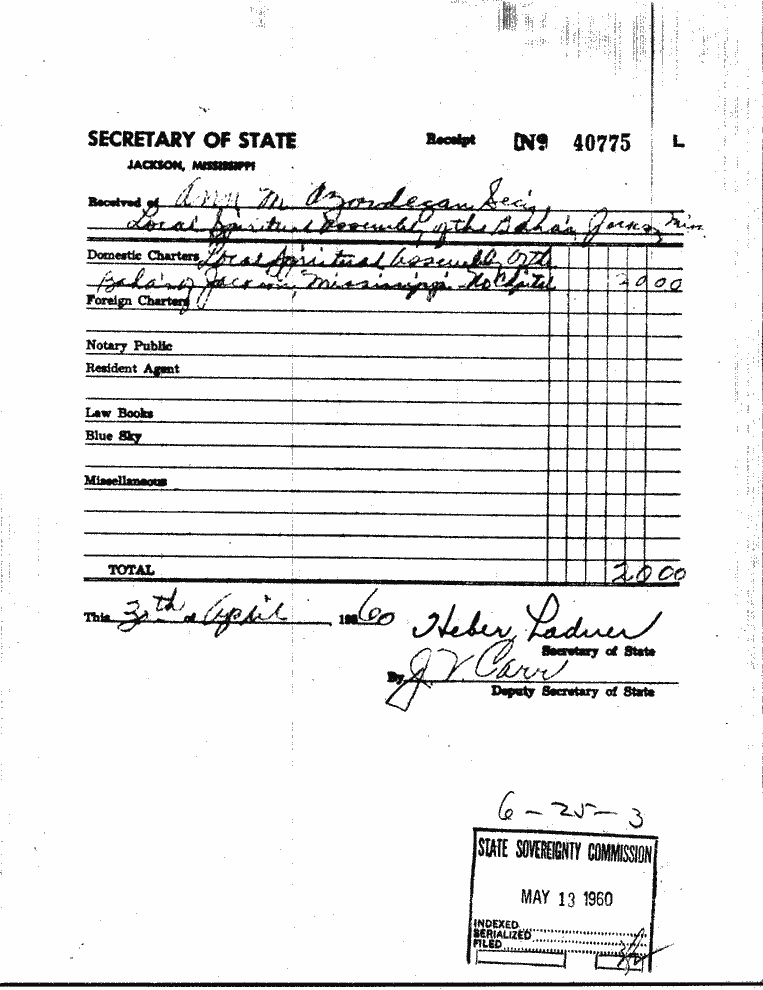 SECRETARY OF STATE Receipt No 40775 L
JACKSON, MISSISSIPPI
Received of Ann M Azordegan Sec.
Local Spiritual Assembly of the Baha'is Miss.
Domestic Charters Local Spiritual Assembly of the
Baha'is of Jackson, Mississippi - No Capital 20 00
Foreign Charters
Notary Public
Resident Agent
Law Books
Blue Sky
Miscellaneous
TOTAL 20 00
This of April 60
Heber Ladner
Secretary of State
By J. V. Carr
Deputy Secretary of State
6-25-3
STATE SOVEREIGNTY COMMISSION
MAY 13 1960
INDEXED
SERIALIZED
FILED